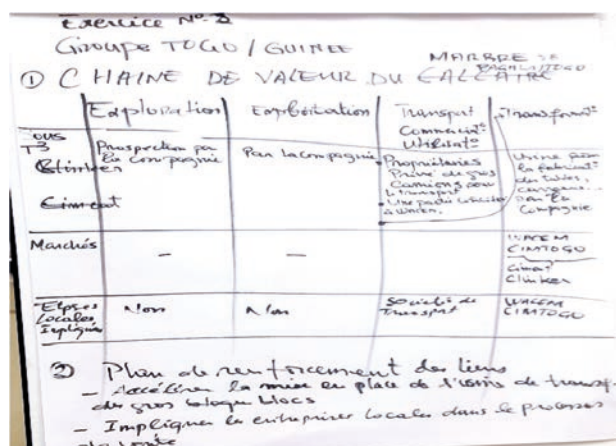 Exercice N° 2
Groupe TOGO / GUINEE
MARBRE DE
PAGALA TOGO
① CHAINE DE VALEUR DU CALCAIRE
Exploration
Exploitation
Transport
Commercialis°
Utilisat°
Transformat°
T3
Clinker
Ciment
Prospection par
la compagnie
Par la compagnie
Propriétaires
Privé de gros
Camions pour
le transport
Une partie
à Wacem.
Usine pour
la fabricat°
des tables,
carreaux...
par la
Compagnie
Marchés
—
—
WACEM
CIMTOGO
Ciment
Clinker
Locales
Impliquées
Non
Non
Société de
Transport
WACEM
CIMTOGO
② Plan de renforcement des liens
- Accélérer la mise en place de l'usine de transf.
des gros blocs
- Impliquer les entreprises locales dans le processus